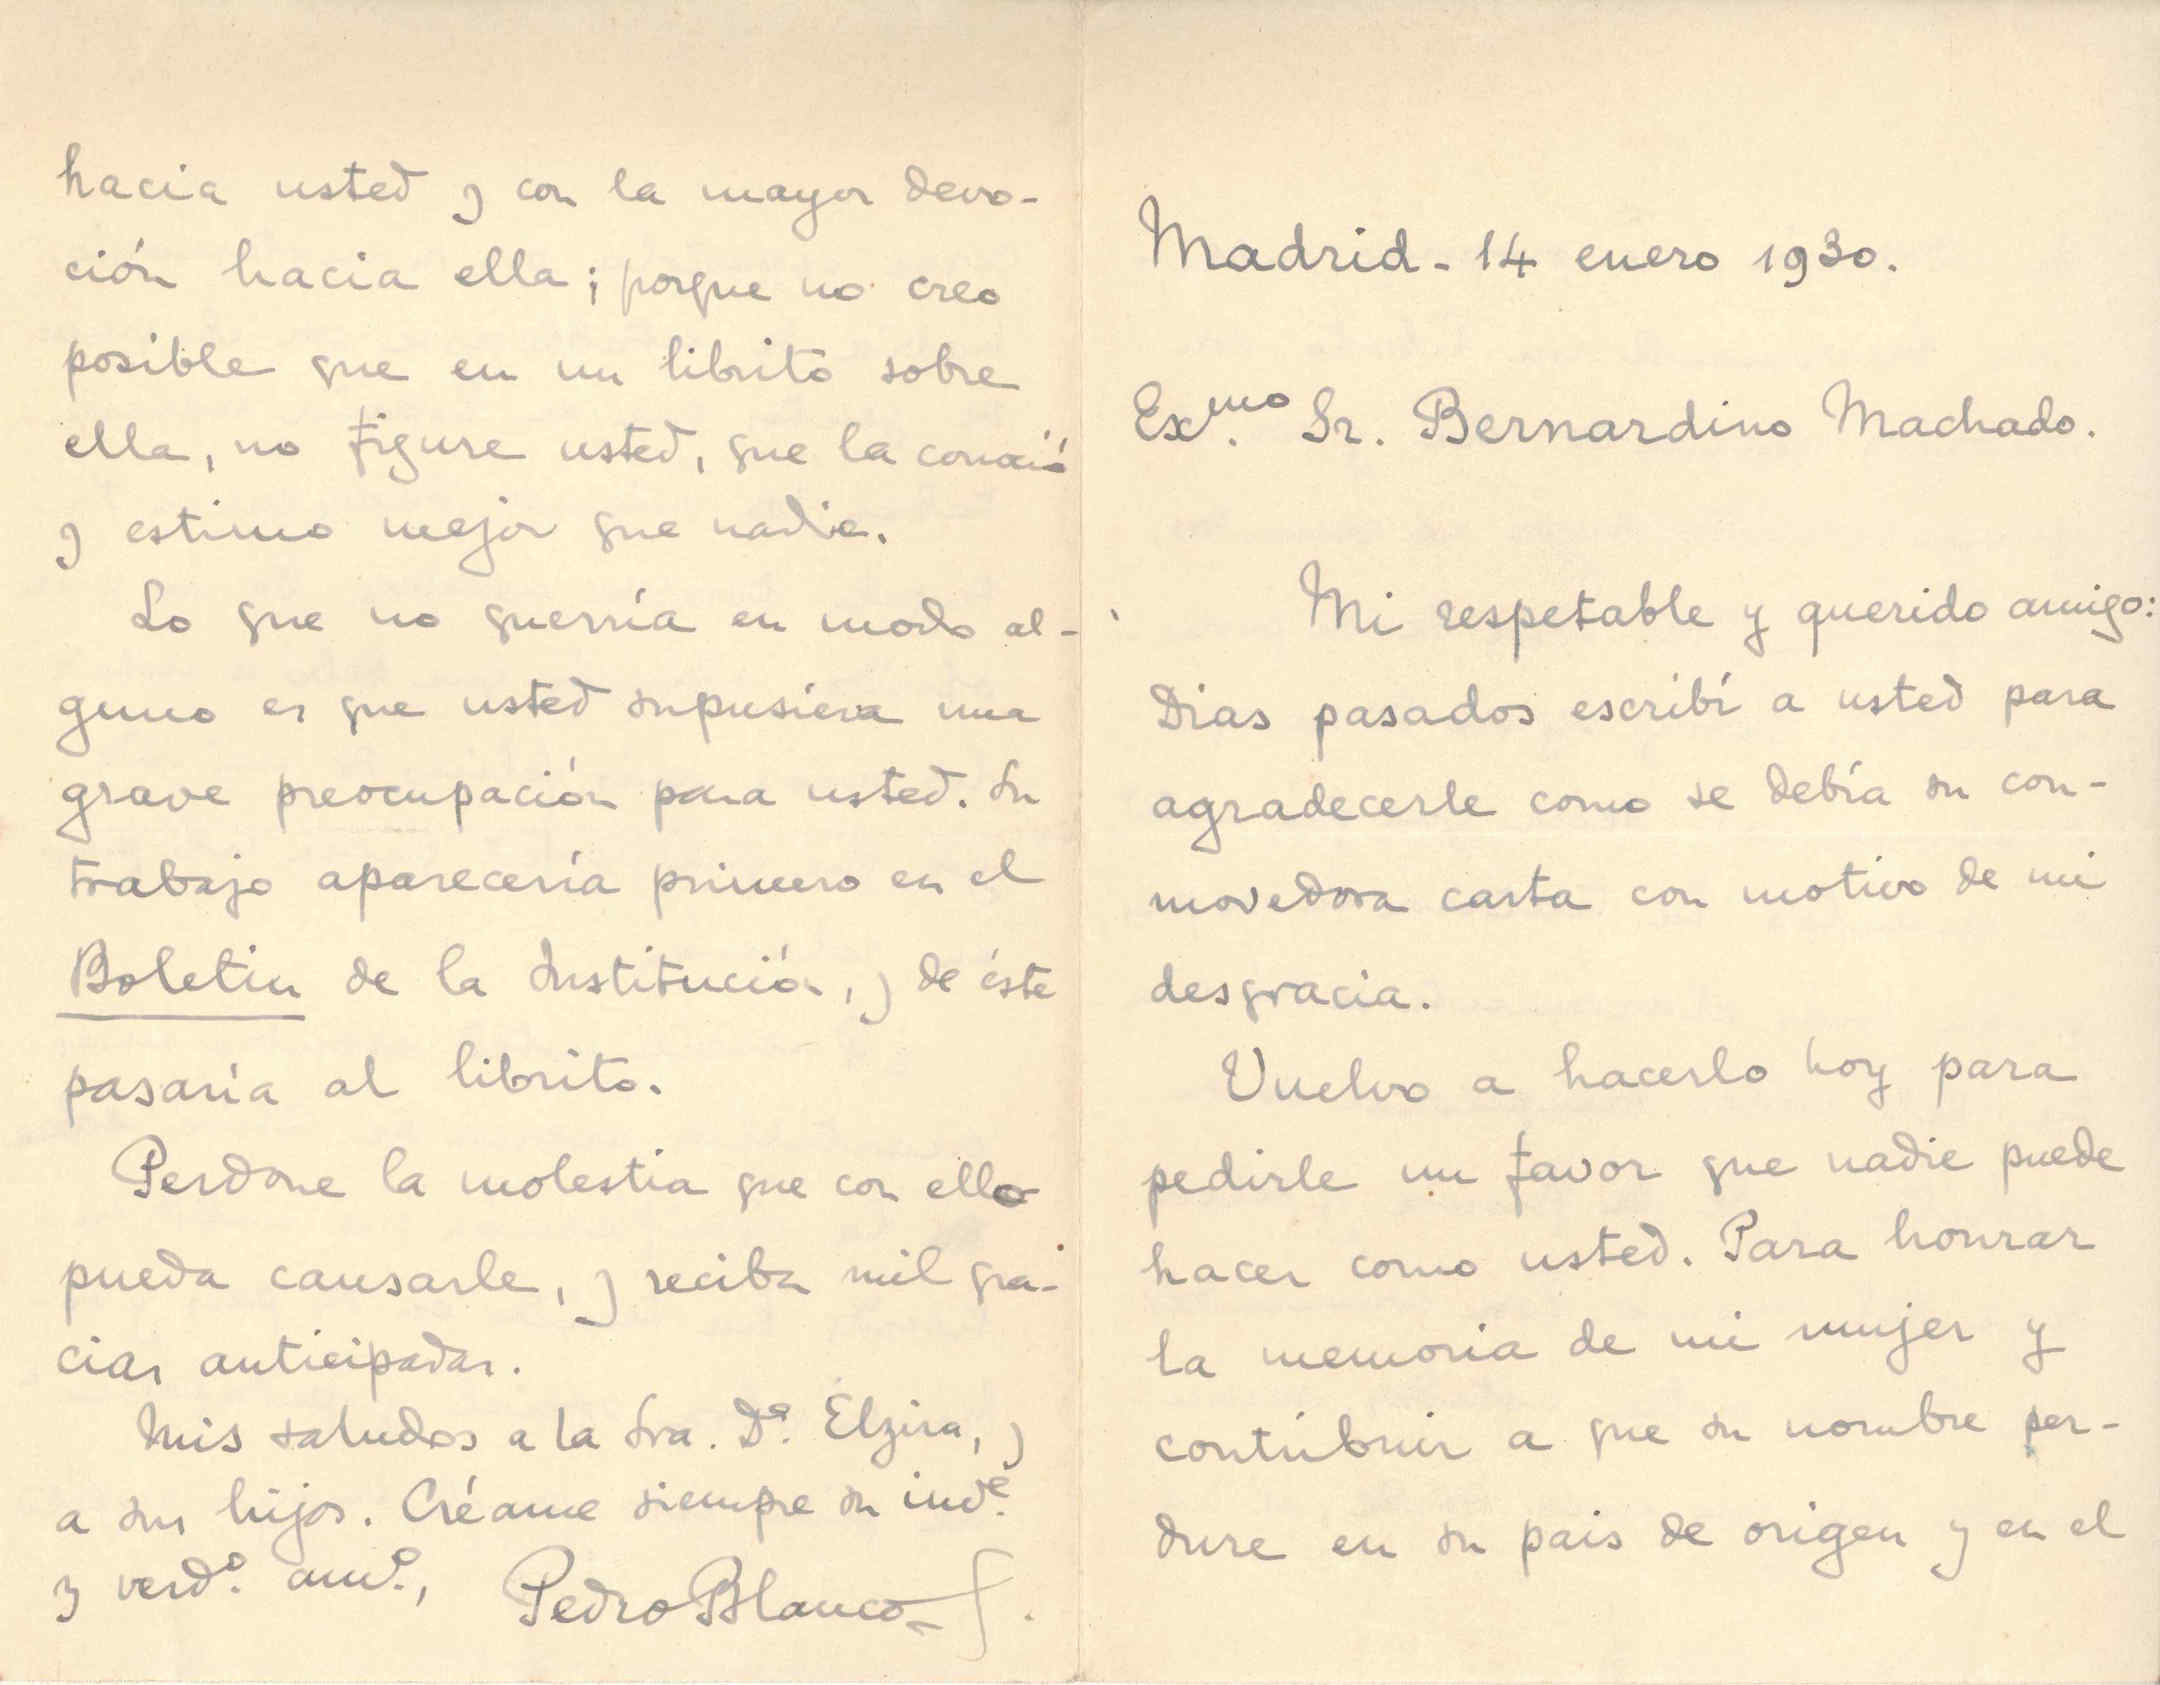 Madrid - 14 enero 1930.
Ex.mo Sr. Bernardino Machado.
Mi respetable y querido amigo:
Dias pasados escribí a usted para
agradecerle como se debía su con-
movedora carta con motivo de mi
desgracia.
Vuelvo a hacerlo hoy para
pedirle un favor que nadie puede
hacer como usted. Para honrar
la memoria de mi mujer y
contribuir a que su nombre per-
dure en su pais de origen y en el
hacia usted y con la mayor devo-
ción hacia ella; porque no creo
posible que en un librito sobre
ella, no figure usted, que la conoció
y estimo mejor que nadie.
Lo que no querría en modo al-
guno es que usted supusiera una
grave preocupación para usted. Su
trabajo aparecería primero en el
Boletin de la Institución, y de éste
pasaría al librito.
Perdone la molestia que con ello
pueda causarle, y reciba mil gra-
cias anticipadas.
Mis saludos a la Sra. D.ª Elzira, y
a sus hijos. Créame siempre su ind.e
y verd.o am.o,
Pedro Blanco